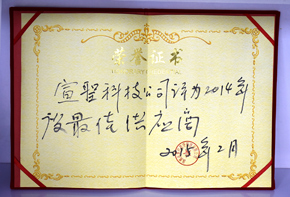 荣誉证书
宣聖科技公司评为2014年
度最佳供应商
2015年2月